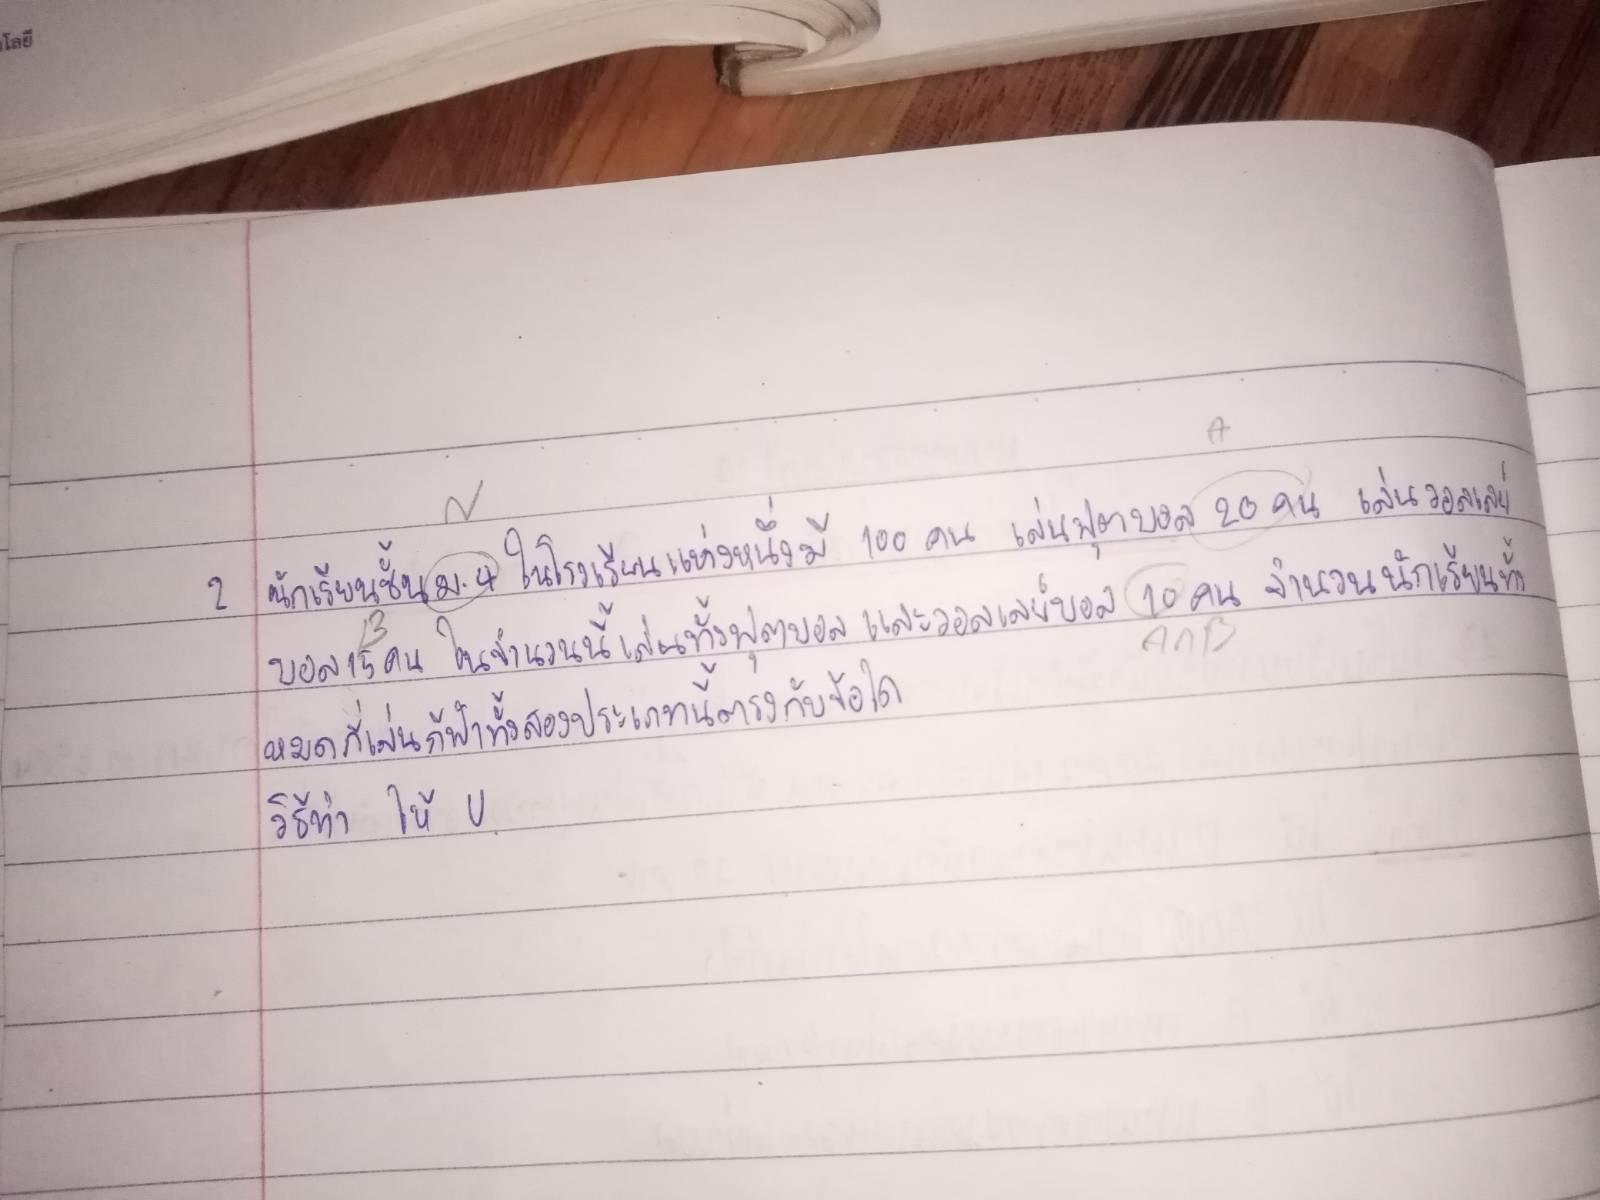 โลยี
N
A
2 นักเรียนชั้น ม.4 ในโรงเรียนแห่งหนึ่งมี 100 คน เล่นฟุตบอล 20 คน เล่นวอลเลย์
B
บอล 15 คน ในจำนวนนี้เล่นทั้งฟุตบอล และวอลเลย์บอล 10 คน จำนวนนักเรียนทั้ง
A∩B
หมดที่เล่นกีฬาทั้งสองประเภทนี้ตรงกับข้อใด
วิธีทำ ให้ U